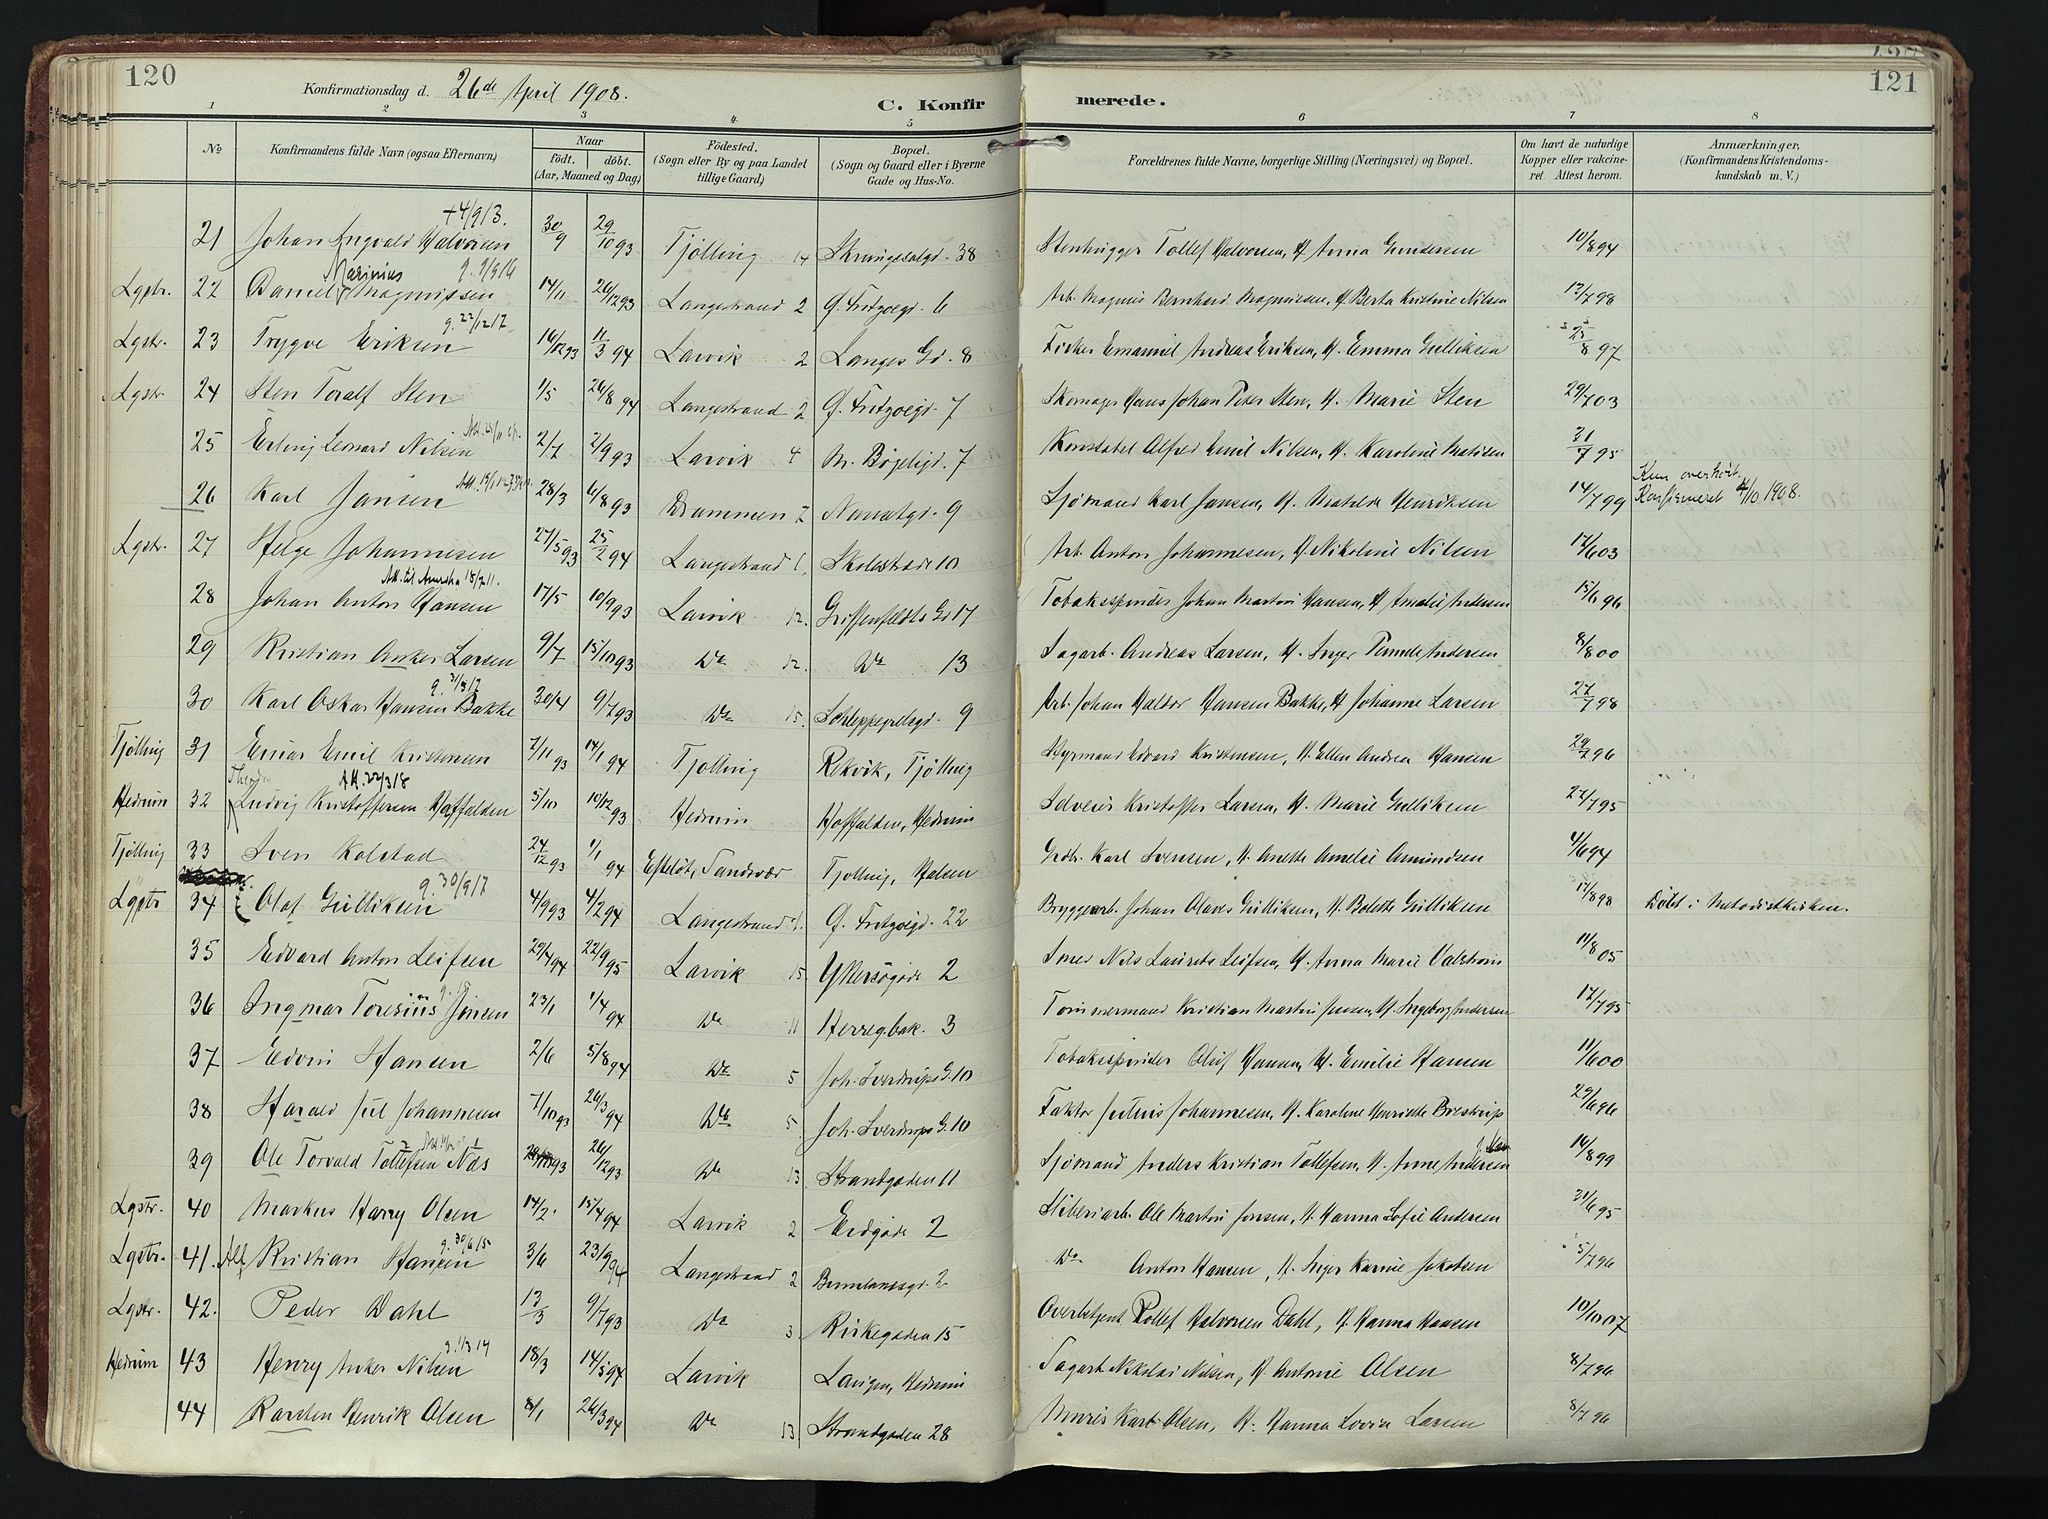 120
Konfirmationsdag d. 26de April 1908.
C. Konfir
merede.
121
1 2 3 4 5 6 7 8
No
Konfirmandens fulde Navn (ogsaa Efternavn)
Naar
födt. döbt.
(Aar, Maaned og Dag)
Födested.
(Sogn eller By og paa Landet tillige Gaard)
Bopæl.
(Sogn og Gaard eller i Byerne Gade og Hus-No.
Forældrenes fulde Navne, borgerlige Stilling (Næringsvei) og Bopæl.
Om havt de naturlige Kopper eller vakcineret. Attest herom.
Anmærkninger.
(Konfirmandens Kristendomskundskab m. V.)
+4/9 13.
21 Johan Ingvald Halvorsen 30/9 29/10 93 Tjölling 14 38 Stenhugger Tollef Halvorsen, H. Anna Gundersen 10/8 94
Marinius g. 9/9 16
Lgstr. 22 Daniel Magnussen 14/11 26/12 93 Langestrand 2 Ø. Fritzöegd. 6 Arb. Magnus Bernhard Magnussen, H. Berta Kristine Nilsen 12/7 98
g. 22/12 17
Lgstr. 23 Trygve Eriksen 16/12 93 11/3 94 Larvik 2 Langes Gd. 8 Fisker Emanuel Andreas Eriksen, H. Emma Gulliksen 25/8 97
Lgstr. 24 Sten Toralf Sten 1/5 26/8 94 Langestrand 2 Ø. Fritzöegd. 7 Skomager Hans Johan Peter Sten, H. Marie Sten 29/7 03
25 Erling Leonard Nilsen 2/7 2/9 93 Larvik 4 M. Bögeligd. 7 Konstabel Alfred Emil Nilsen, H. Karoline Matisen 31/7 95
26 Karl Jansen 28/3 6/8 93 Drammen 7 Nansetgd. 9 Sjömand Karl Jansen, H. Matilde Henriksen 14/7 99 Kun overhört. Konfirmeret 4/10 1908.
Lgstr. 27 Helge Johannesen 27/5 93 25/2 94 Langestrand 1, Skolestræde 10 Arb. Anton Johannesen, H. Nikoline Nilsen 12/6 03
Att. til Amerika 18/7 11.
28 Johan Anton Hansen 17/5 10/9 93 Larvik 12. Griffenfeldts Gd 17 Tobaksspinder Johan Martin Hansen, H. Amalie Andersen 15/6 96
29 Kristian Anker Larsen 9/7 15/10 93 Do 12. Do 13 Sagarb. Andreas Larsen, H. Inger Pernele Andersen 8/8 00
g. 31/3 17
30 Karl Oskar Hansen Bakke 30/4 9/7 93 Do 15. Schleppegrelsgd. 9 Arb. Johan Haldor Hansen Bakke, H. Johanne Larsen 27/7 98
Tjölling 31 Einar Emil Kristensen 7/11 93 14/1 94 Tjölling Rekvik, Tjölling Styrmand Edvard Kristensen, H. Ellen Andrea Hansen 29/7 96
Att. 22/3 18
Hedrum 32 Ludvig Kristoffersen Hoffalden 5/10 10/12 93 Hedrum Hoffalden, Hedrum Selveier Kristoffer Larsen, H. Marie Gulliksen 27/7 95
Tjölling 33 Sven Kolstad 24/12 93 1/1 94 Efteløt, Sandsvær Tjölling, Halsen Grdbr. Karl Svensen, H. Anette Amelie Amundsen 4/6 94
g. 30/9 17
Lgstr 34 Olaf Gulliksen 4/9 93 4/2 94 Langestrand 1. Ø. Fritzöegd. 22 Bryggearb. Johan Olaves Gulliksen, H. Bolette Gulliksen 17/8 98 Döbt i Metodistkirken.
35 Edvard Anton Leifsen 29/4 94 22/9 95 Larvik 15. Yttersögade 2 Smed Nils Laurets Leifsen, H. Anna Marie Valström 11/8 05
36 Ingmar Toresius Jonsen 23/1 1/4 94 Do 11 Herregbak. 3 Tömmermand Kristian Martin Jensen, H. Ingeborg Andersen 17/7 95
37 Edvin Hansen 2/6 5/8 94 Do 5 Joh. Sverdrups G. 10 Tobaksspinder Oluf Hansen, H. Emilie Hansen 11/6 00
38 Harald Juel Johannesen 7/10 93 26/3 94 Do 5. Joh. Sverdrups G. 10 Faktor Julius Johannesen, H. Karoline Henriette Brestrup 29/6 96
39 Ole Torvald Tollefsen Næs 93 26/12 93 Do 13 Strandgaden 11 Sjömand Anders Kristian Tollefsen, H. Anne Andersen 14/8 99
Lgstr. 40 Markus Harry Olsen 14/2 15/4 94 Larvik 2 Eidgade 2 Stöberiarb. Ole Martin Jonsen, H. Hanna Sofie Andersen 31/6 95
g. 30/6 15
Lgstr. 41. Alf Kristian Hansen 3/6 23/9 94 Langestrand 2 Brunlanesgd. 2 Do Anton Hansen, H. Inger Karine Jakobsen 5/7 96
Lgstr. 42. Peder Dahl 13/3 9/7 93 Do 3. Kirkegaden 15 Overbetjent Tollef Halvorsen Dahl, H. Hanna Hansen 10/10 07
g. 1/3 14
Hedrum 43 Henry Anker Nilsen 18/3 14/5 94 Larvik Laugen, Hedrum Sagarb. Nikolai Nilsen, H. Antonie Olsen 8/7 96
44 Karsten Henrik Olsen 8/1 26/3 94 Do 13 Strandgaden 28 Murer Karl Olsen, H. Hanna Lovise Larsen 8/7 96